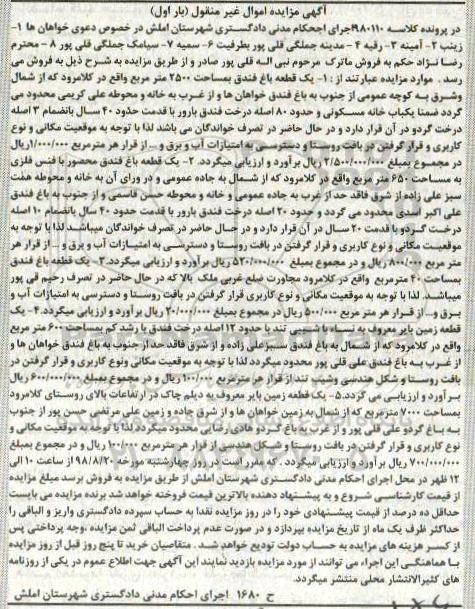 آگهی مزایده اموال غیر منقول (بار اول)
در پرونده کلاسه ۹۸۰۱۱۰اجرای اجحکام مدنی دادگستری شهرستان املش در خصوص دعوی خواهان ها ۱-
زینب ۲- آمینه ۳- رقیه ۴- مدینه جملگی قلی پور بطرفیت ۶- سمیه ۷- سیامک جملگی قلی پور ۸- محترم
رضا نژاد حکم به فروش ماترک مرحوم نبی اله قلی پور صادر و از طریق مزایده به شرح ذیل به فروش می
رسد . موارد مزایده عبارتند از : ۱- یک قطعه باغ فندق بمساحت ۲۵۰۰ متر مربع واقع در کلامرود که از شمال
وشرق به کوچه عمومی از جنوب به باغ فندق خواهان ها و از غرب به خانه و محوطه علی کریمی محدود می
گردد ضمنا یکباب خانه مسکونی و حدود ۸۰ اصله درخت فندق بارور با قدمت حدود ۴۰ سال بانضمام ۳ اصله
درخت گردو در آن قرار دارد و در حال حاضر در تصرف خواندگان می باشد لذا با توجه به موقعیت مکانی و نوع
کاربری و قرار گرفتن در بافت روستا و دسترسی به امتیازات آب و برق و ... از قرار هر مترمربع ۱/۰۰۰/۰۰۰ریال
در مجموع بمبلغ ۲/۵۰۰/۰۰۰/۰۰۰ ریال برآورد و ارزیابی میگردد. ۲- یک قطعه باغ فندق محصور با فنس فلزی
به مساحت ۶۵۰ متر مربع واقع در کلامرود که از شمال به جاده عمومی و در ورای آن به خانه و محوطه همت
سبز علی زاده از شرق فاقد حد از غرب به جاده عمومی و خانه و محوطه حسن قاسمی و از جنوب به باغ فندق
علی اکبر اسدی محدود می گردد و حدود ۲۰ اصله درخت فندق بارور با قدمت حدود ۴۰ سال بانضمام ۱۰ اصله
درخت گردو با قدمت ۲۰ سال در آن قرار دارد و در حال حاضر در تصرف خواندگان میباشد لذا با توجه به
موقعیت مکانی و نوع کاربری و قرار گرفتن در بافت روستا و دسترسی به امتیازات آب و برق و ... از قرار هر
متر مربع ۸۰۰/۰۰۰ ریال و در مجموع بمبلغ ۵۲۰/۰۰۰/۰۰۰ ریال برآورد و ارزیابی میگردد. ۳- یک قطعه باغ فندق
بمساحت ۴۰ مترمربع واقع در کلامرود مجاورت ضلع غربی ملک بالا که در حال حاضر در تصرف رحیم قلی پور
میباشد. لذا با توجه به موقعیت مکانی و نوع کاربری قرار گرفتن در بافت روستا و دسترسی به امتیازات آب و
برق و... از قرار هر متر مربع ۵۰۰/۰۰۰ ریال در مجموع بمبلغ ۲۰/۰۰۰/۰۰۰ ریال برآورد و ارزیابی میگردد. ۴- یک
قطعه زمین بایر معروف به نساء با شیبی تند با حدود ۱۲ اصله درخت فندق با رشد کم بمساحت ۶۰۰ متر مربع
واقع در کلامرود که از شمال به باغ فندق سبزعلی زاده و از شرق فاقد حد از جنوب به باغ فندق خواهان ها و
از غرب به باغ فندق علی قلی پور محدود میگردد لذا با توجه به موقعیت مکانی ونوع کاربری و قرار گرفتن در
بافت روستا و شکل هندسی وشیب تند از قرار هر مترمربع ۱۰۰/۰۰۰ ریال و در مجموع بمبلغ ۶۰/۰۰۰/۰۰۰ ریال
بر آورد و ارزیابی می گردد. ۵- یک قطعه زمین بایر معروف به دیلم چاک در ارتفاعات بالای روستای کلامرود
بمساحت ۷۰۰۰ مترمربع که از شمال به زمین خواهان ها و از شرق جاده و زمین علی مرتضی حسن پور از جنوب
به باغ گردو علی قلی پور و از غرب به باغ گردو هادی رضایی محدود میگردد لذا با توجه به موقعیت مکانی و
نوع کاربری و قرار گرفتن در بافت روستا و شکل هندسی از قرار هر مترمربع ۱۰۰/۰۰۰ ریال و در مجموع بمبلغ
۷۰۰/۰۰۰/۰۰۰ ریال برآورد و ارزیابی میگردد . که مقرر است در روز چهارشنبه مورخه ۹۸/۸/۲۰ از ساعت ۱۰ الی
۱۲ ظهر در محل اجرای احکام مدنی دادگستری شهرستان املش از طریق مزایده به فروش برسد مبلغ مزایده
از قیمت کارشناسی شروع و به پیشنهاد دهنده بالاترین قیمت فروخته خواهد شد برنده مزایده می بایست
حداقل ده درصد از قیمت پیشنهادی خود را در روز مزایده نقدا به حساب سپرده دادگستری واریز و الباقی را
حداکثر ظرف یک ماه از تاریخ مزایده بپردازد و در صورت عدم پرداخت الباقی ثمن مزایده ،وجه پرداختی پس
از کسر هزینه های مزایده به حساب دولت تودیع خواهد شد . متقاضیان خرید تا پنج روز قبل از روز مزایده
با هماهنگی این اجراء می توانند از مورد مزایده بازدید نمایند این آگهی جهت اطلاع عموم در یکی از روزنامه
های کثیرالانتشار محلی منتشر میگردد.
ح ۱۶۸۰ اجرای احکام مدنی دادگستری شهرستان املش